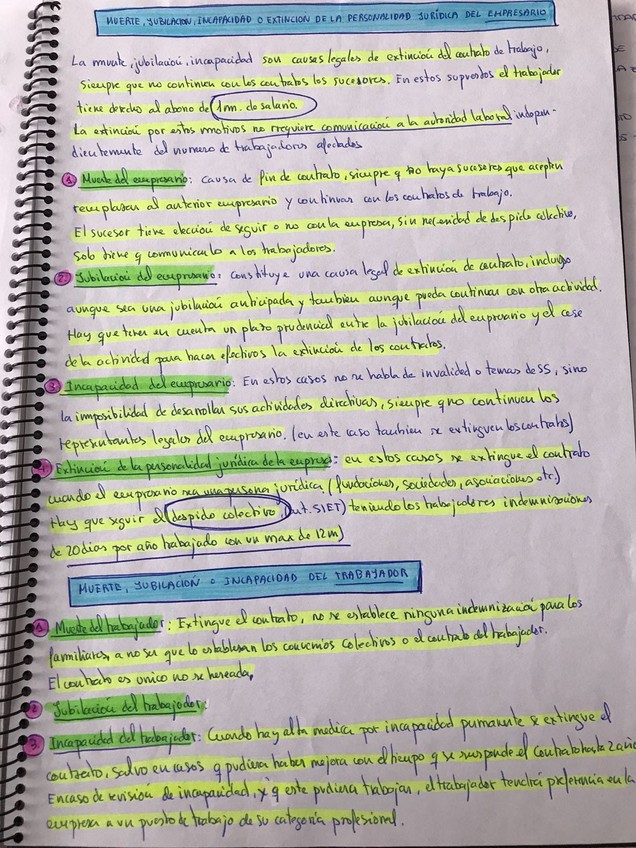 MUERTE, JUBILACION, INCAPACIDAD O EXTINCION DE LA PERSONALIDAD JURÍDICA DEL EMPRESARIO
La muerte, jubilación, incapacidad son causas legales de extinción del contrato de trabajo,
siempre que no continuen con los contratos los sucesores. En estos supuestos el trabajador
tiene derecho al abono de 1m. de salario.
La extinción por estos motivos no requiere comunicación a la autoridad laboral indepen-
dientemente del numero de trabajadores afectados
1 Muerte del empresario: causa de fin de contrato, siempre q no haya sucesores que acepten
remplazar al anterior empresario y continuar con los contratos de trabajo.
El sucesor tiene elección de seguir o no con la empresa, sin necesidad de despido colectivo,
solo tiene q comunicarlo a los trabajadores.
2 Jubilación del empresario: constituye una causa legal de extinción de contrato, incluso
aunque sea una jubilación anticipada y tambien aunque pueda continuar con otra actividad.
Hay que tener en cuenta un plazo prudencial entre la jubilación del empresario y el cese
de la actividad para hacer efectivos la extinción de los contratos.
3 Incapacidad del empresario: En estos casos no se habla de invalidez o temas de SS, sino
la imposibilidad de desarrollar sus actividades directivas, siempre q no continuen los
representantes legales del empresario. (en este caso tambien se extinguen los contratos)
4 Extinción de la personalidad jurídica de la empresa: en estos casos se extingue el contrato
cuando el empresario sea una persona jurídica (fundaciones, sociedades, asociaciones etc.)
Hay que seguir el despido colectivo, (51ET) teniendo los trabajadores indemnizaciones
de 20 dias por año trabajado con un max de 12m)
MUERTE, JUBILACIÓN o INCAPACIDAD DEL TRABAJADOR
1 Muerte del trabajador: Extingue el contrato, no se establece ninguna indemnización para los
familiares, a no ser que lo establezcan los convenios colectivos o el contrato del trabajador.
El contrato es unico no se hereda.
2 Jubilación del trabajador:
3. Incapacidad del trabajador: Cuando hay alta medica por incapacidad permanente se extingue el
contrato, salvo en casos q pudiera haber mejora con el tiempo y se suspende el contrato hasta 2 año
En caso de revisión de incapacidad, y q este pudiera trabajar, el trabajador tendrá preferencia en la
empresa a un puesto de trabajo de su categoría profesional.